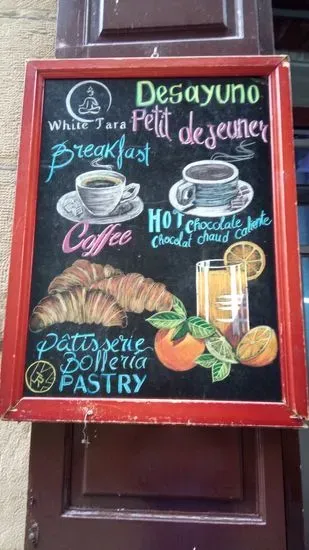 Desayuno
White Tara
Petit dejeuner
Breakfast
Coffee
HOT chocolate
Chocolat chaud Caliente
pâtisserie
Bolleria
PASTRY